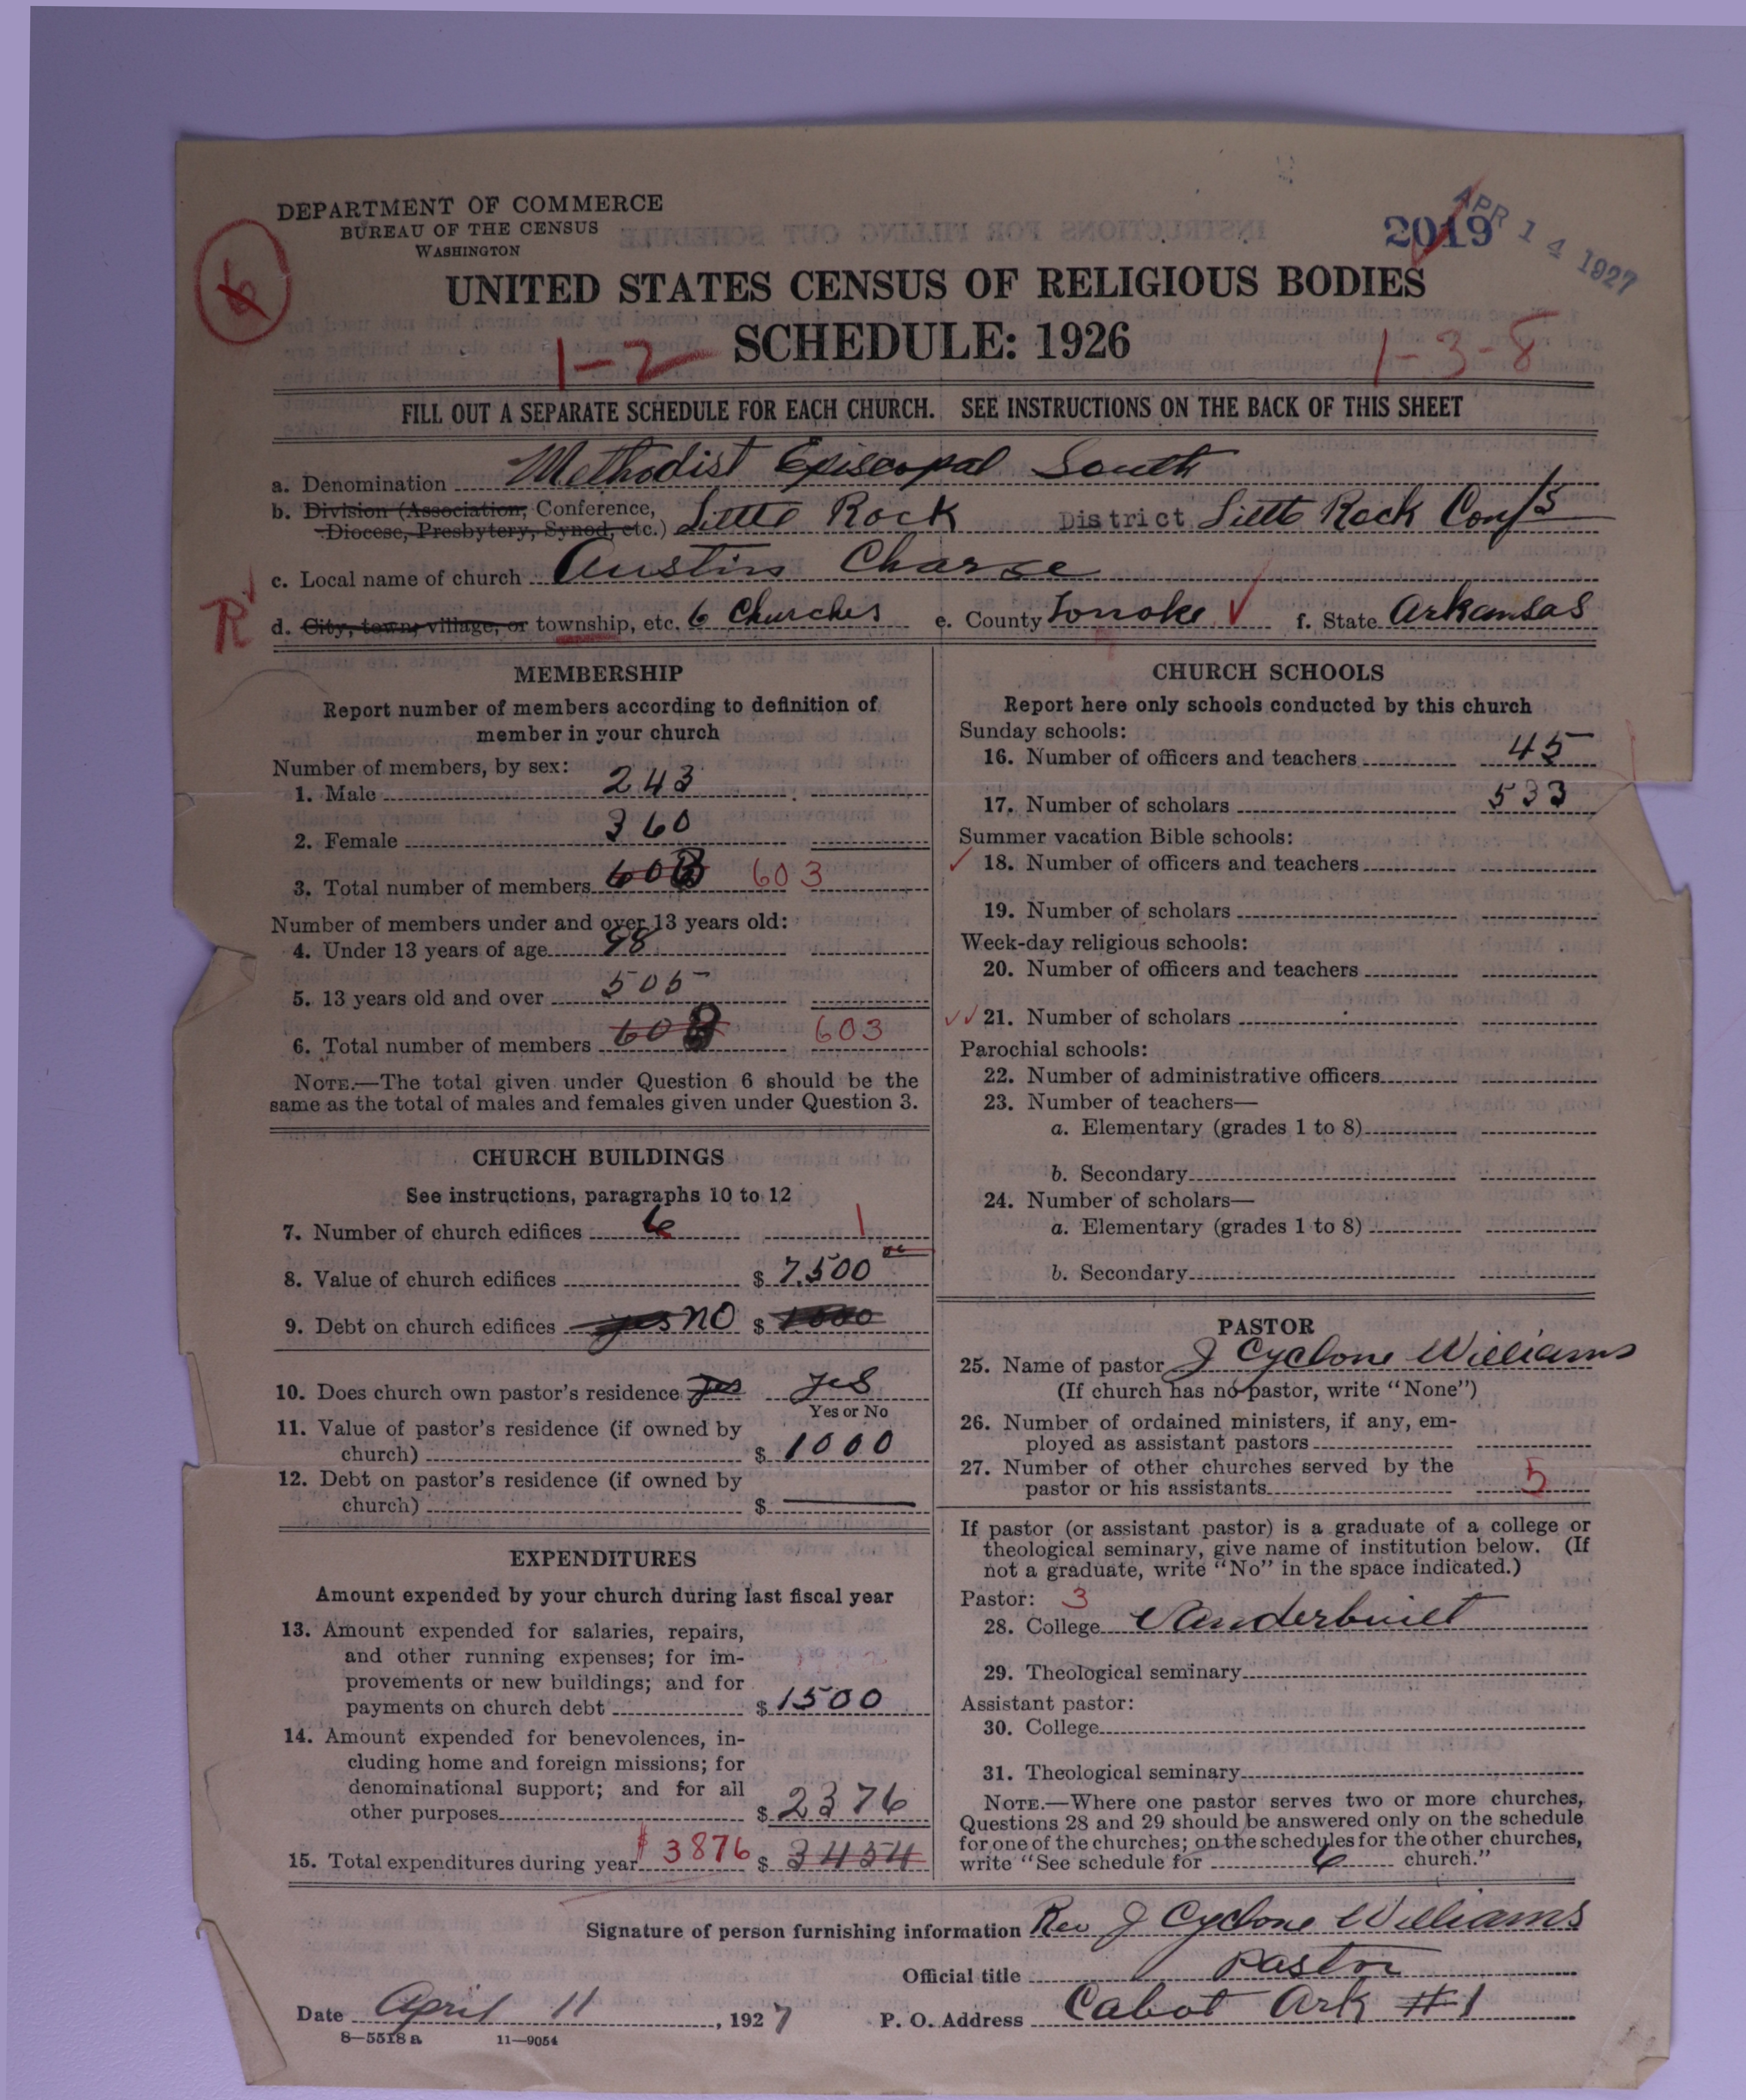 DEPARTMENT OF COMMERCE
BUREAU OF THE CENSUS
WASHINGTON
2019
APR 14 1927
6
UNITED STATES CENSUS OF RELIGIOUS BODIES
SCHEDULE: 1926
1-2
1-3-8
FILL OUT A SEPARATE SCHEDULE FOR EACH CHURCH. SEE INSTRUCTIONS ON THE BACK OF THIS SHEET
a. Denomination Methodist Episcopal South
b. Division (Association, Conference,
Diocese, Presbytery, Synod, etc.) Little Rock District Little Rock Conf
c. Local name of church Austin Charge
R
d. City, town, village, or township, etc. 6 Churches e. County Lonoke f. State Arkansas
MEMBERSHIP
Report number of members according to definition of
member in your church
Number of members, by sex:
1. Male 243
2. Female 360
3. Total number of members 603
Number of members under and over 13 years old:
4. Under 13 years of age 98
5. 13 years old and over 505
6. Total number of members 603
NOTE.—The total given under Question 6 should be the
same as the total of males and females given under Question 3.
CHURCH BUILDINGS
See instructions, paragraphs 10 to 12
7. Number of church edifices 6 1
8. Value of church edifices $ 7,500 00
9. Debt on church edifices yes no $ 1000
10. Does church own pastor's residence yes yes
Yes or No
11. Value of pastor's residence (if owned by
church) $ 1000
12. Debt on pastor's residence (if owned by
church) $ —
EXPENDITURES
Amount expended by your church during last fiscal year
13. Amount expended for salaries, repairs,
and other running expenses; for im-
provements or new buildings; and for
payments on church debt $ 1500
14. Amount expended for benevolences, in-
cluding home and foreign missions; for
denominational support; and for all
other purposes $ 2376
15. Total expenditures during year $3876 $ 3454
CHURCH SCHOOLS
Report here only schools conducted by this church
Sunday schools:
16. Number of officers and teachers 45
17. Number of scholars 533
Summer vacation Bible schools:
18. Number of officers and teachers
19. Number of scholars
Week-day religious schools:
20. Number of officers and teachers
21. Number of scholars
Parochial schools:
22. Number of administrative officers
23. Number of teachers—
a. Elementary (grades 1 to 8)
b. Secondary
24. Number of scholars—
a. Elementary (grades 1 to 8)
b. Secondary
PASTOR
25. Name of pastor J Cyclone Williams
(If church has no pastor, write "None")
26. Number of ordained ministers, if any, em-
ployed as assistant pastors
27. Number of other churches served by the
pastor or his assistants 5
If pastor (or assistant pastor) is a graduate of a college or
theological seminary, give name of institution below. (If
not a graduate, write "No" in the space indicated.)
Pastor: 3
28. College Vanderbuilt
29. Theological seminary
Assistant pastor:
30. College
31. Theological seminary
NOTE.—Where one pastor serves two or more churches,
Questions 28 and 29 should be answered only on the schedule
for one of the churches; on the schedules for the other churches,
write "See schedule for 6 church."
Signature of person furnishing information Rev J Cyclone Williams
Official title Pastor
Date April 11, 1927 P. O. Address Cabot Ark #1
8—5518 a 11—9054